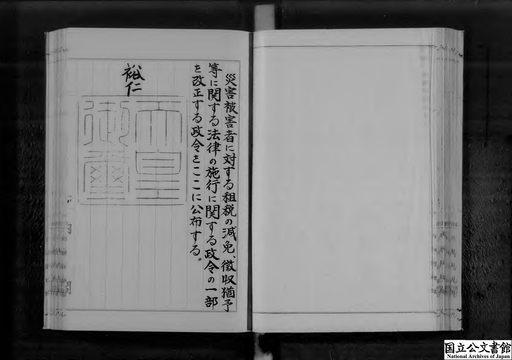 災害被害者に対する租税の減免、徴収猶予
等に関する法律の施行に関する政令の一部
を改正する政令をここに公布する。
裕仁
天皇
御璽
国立公文書館
National Archives of Japan